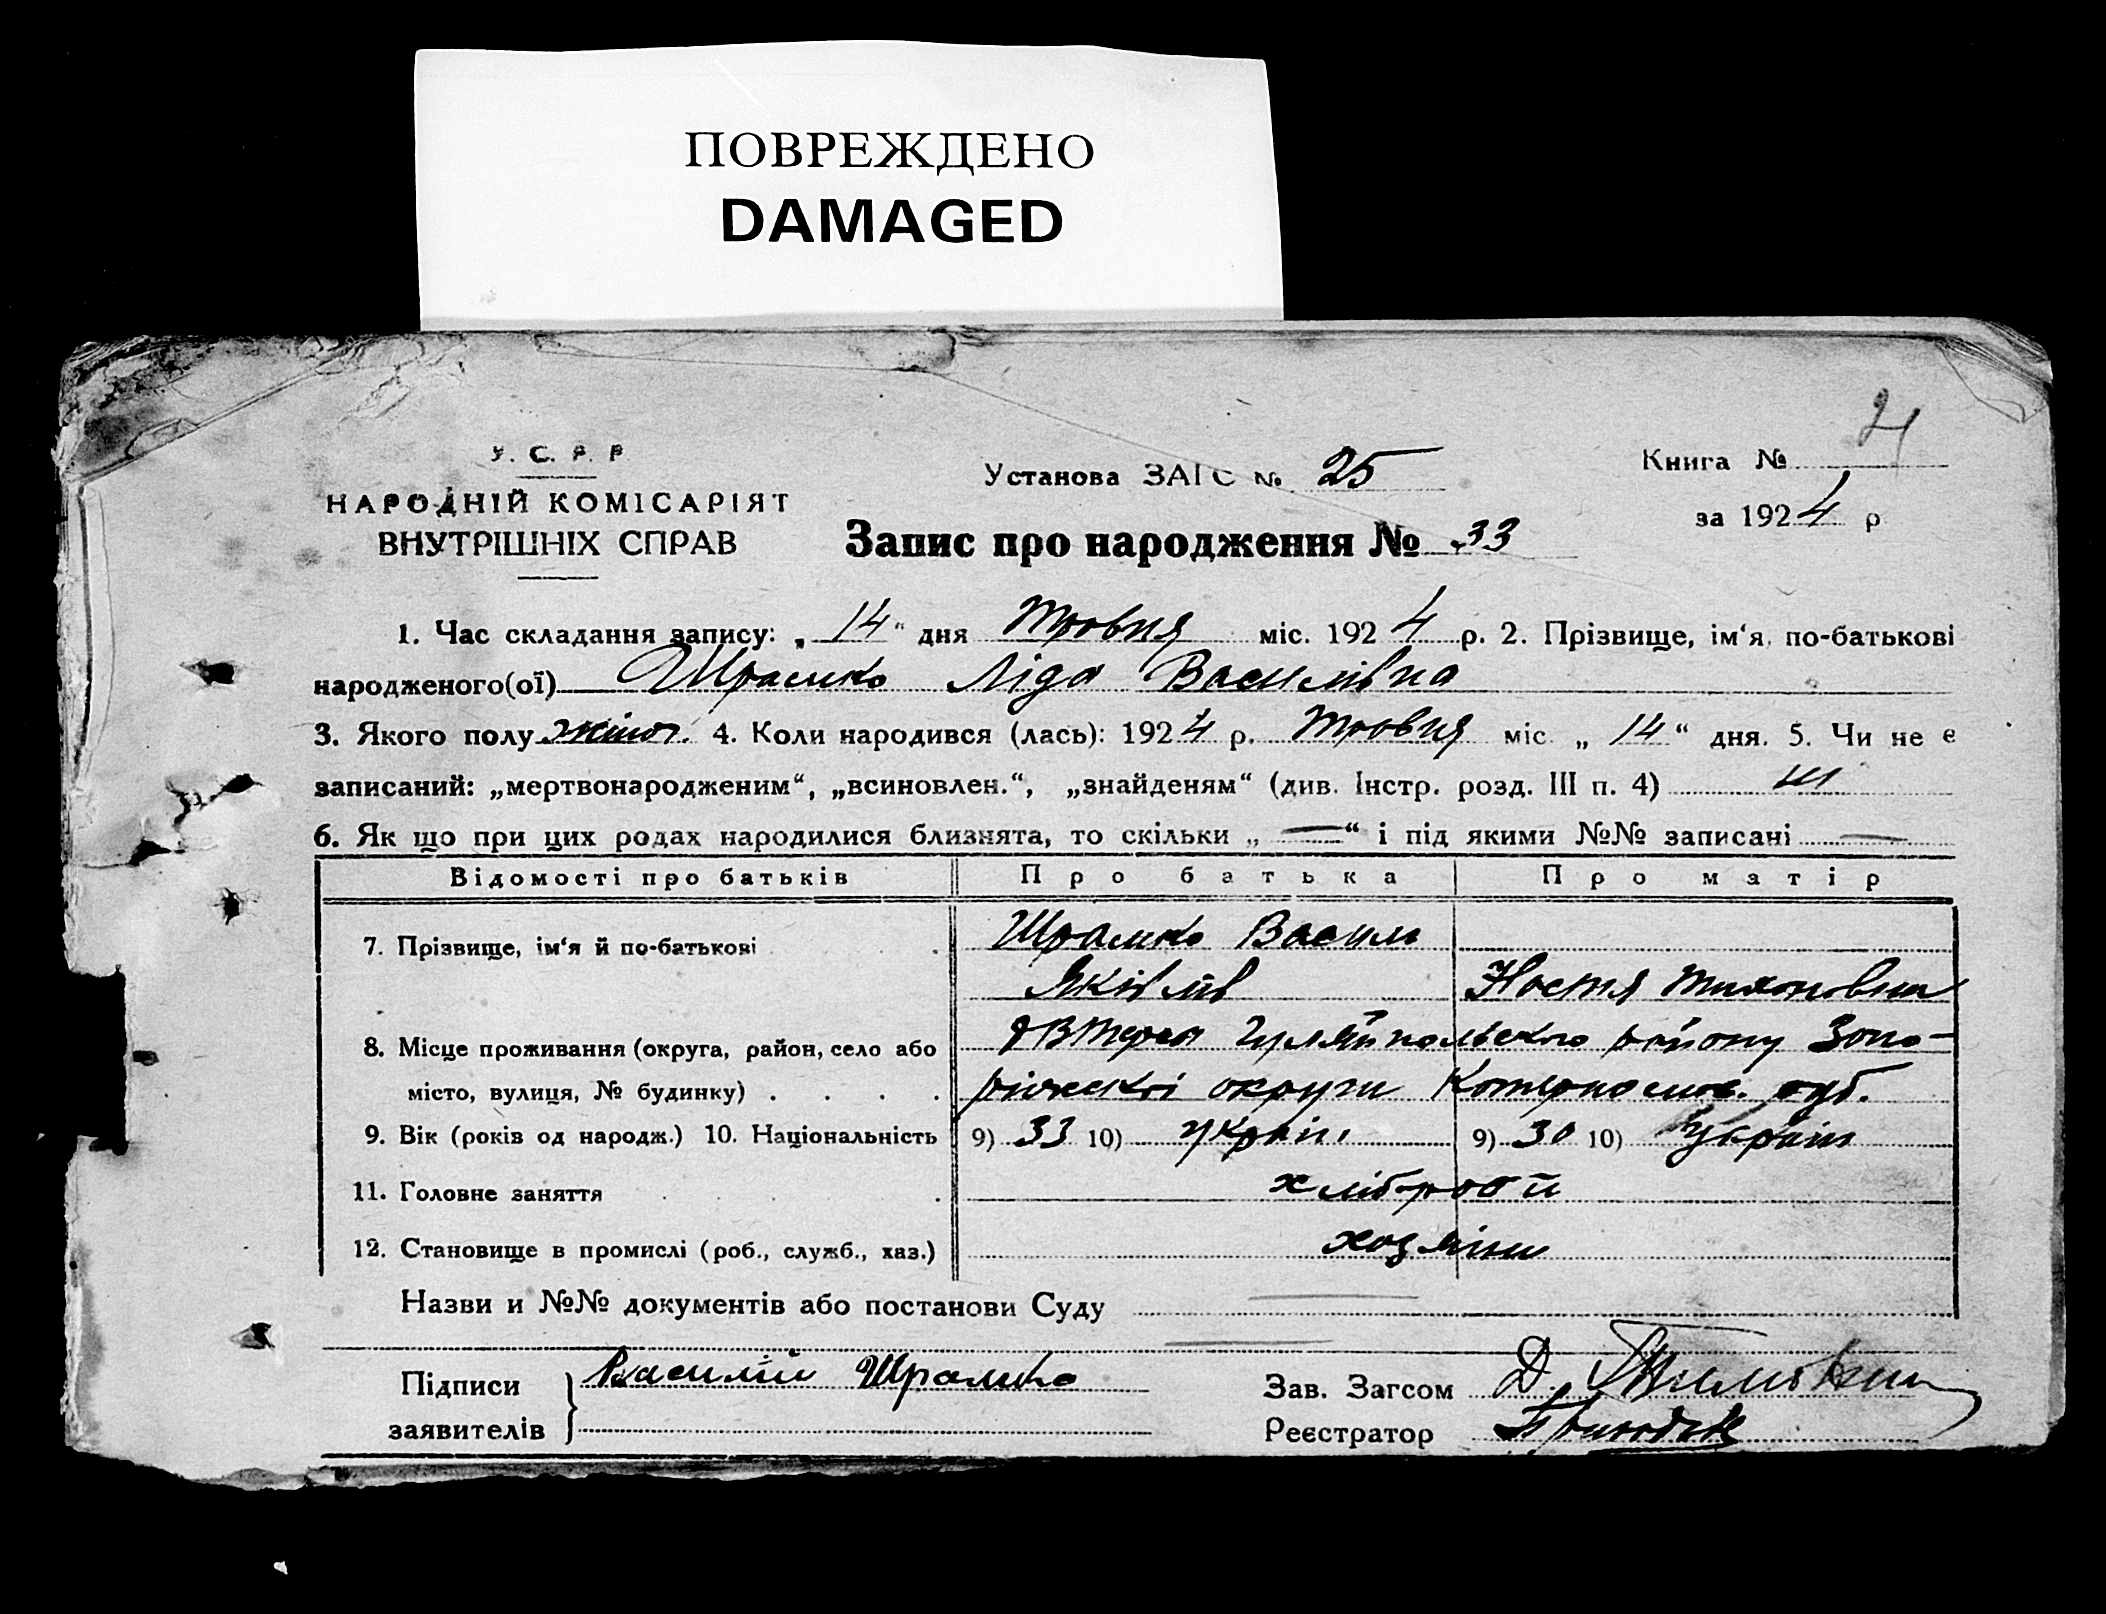 ПОВРЕЖДЕНО
DAMAGED
У. С. Р. Р
НАРОДНІЙ КОМІСАРІЯТ
ВНУТРІШНІХ СПРАВ
Установа ЗАГС № 25
Книга №
за 1924 р
Запис про народження № 33
1. Час складання запису: „14“ дня Травня міс. 1924 р. 2. Прізвище, ім‘я, по-батькові
народженого(ої) Шрамко Ліда Василівна
3. Якого полу жіноч. 4. Коли народився (лась): 1924 р. Травня міс. „14“ дня. 5. Чи не є
записаний: „мертвонародженим“, „всиновлен.“, „знайденям“ (див. Інстр. розд. III п. 4) ні
6. Як що при цих родах народилися близнята, то скільки „—“ і під якими №№ записані —
Відомості про батьків Про батька Про матір
7. Прізвище, ім‘я й по-батькові Шрамко Василь
Яківлів Настя Тихоновна
8. Місце проживання (округа, район, село або Гуляйпольского району Запо-
місто, вулиця, № будинку) . . . . ріжскої округи Катериносл. губ.
9. Вік (років од народж.) 10. Національність 9) 33 10) Україн. 9) 30 10) Україн
11. Головне заняття хлібороби
12. Становище в промислі (роб., служб., хаз.) хозяїни
Назви и №№ документів або постанови Суду —
Підписи Василий Шрамко Зав. Загсом Д.
заявителів Реєстратор